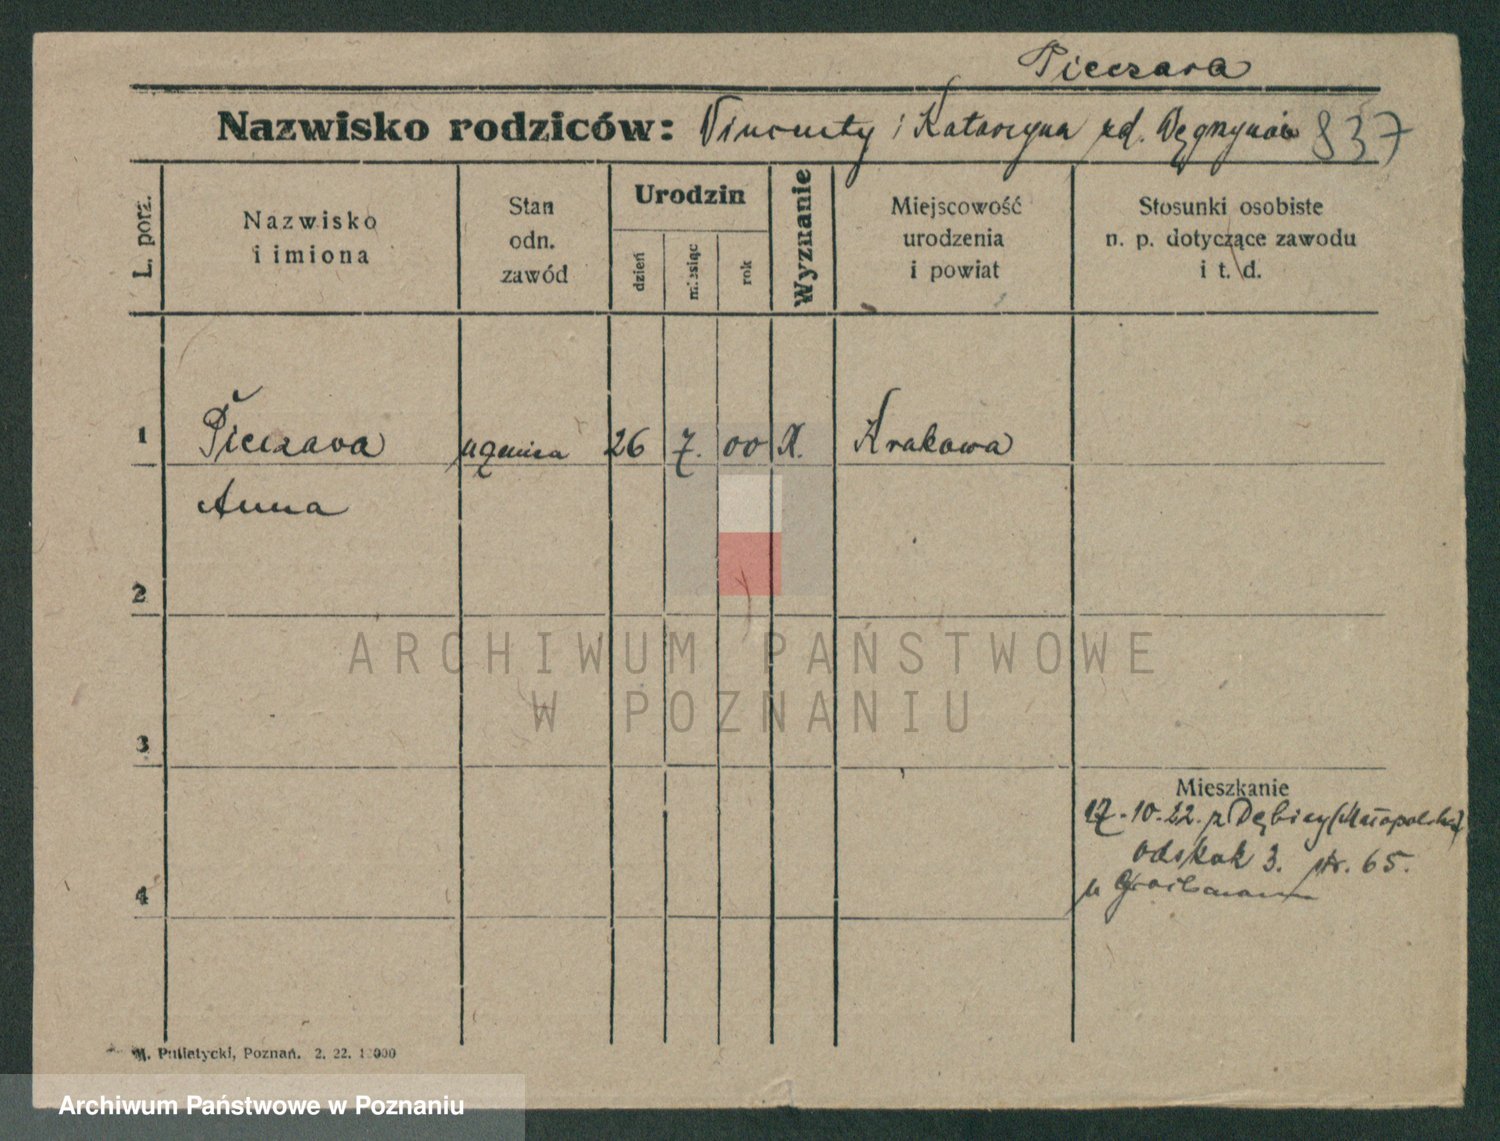 Pieczara
Nazwisko rodziców: Vincenty i Katarzyna 837
L. porz.
Nazwisko
i imiona
Stan
odn.
zawód
Urodzin
dzień
miesiąc
rok
Wyznanie
Miejscowość
urodzenia
i powiat
Stosunki osobiste
n. p. dotyczące zawodu
i t. d.
1
Pieczara
26
7.
00
Krakowa
Anna
2
ARCHIWUM PAŃSTWOWE
W POZNANIU
3
Mieszkanie
17.-10-22. z Dębicy (Małopolska)
3. str. 65.
4
M. Putiatycki, Poznań. 2. 22.
Archiwum Państwowe w Poznaniu